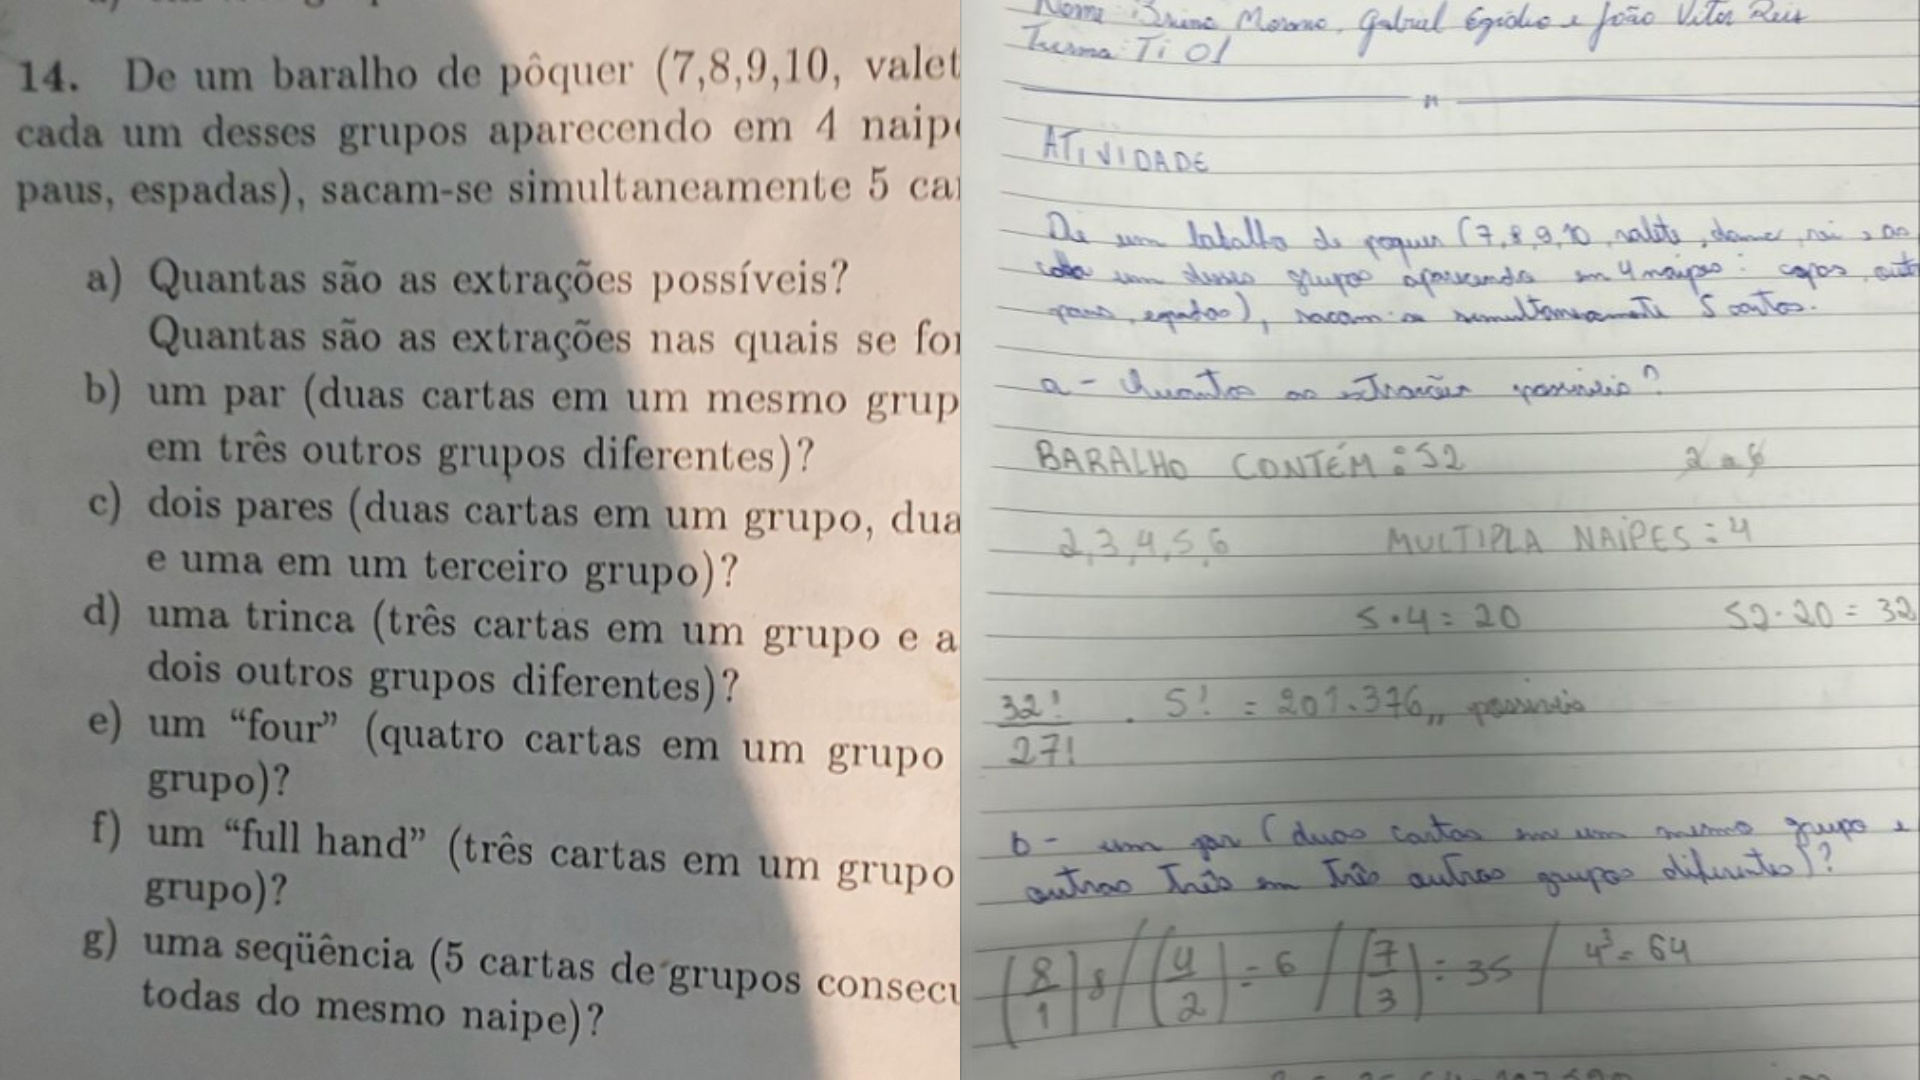 14. De um baralho de pôquer (7,8,9,10, valet
cada um desses grupos aparecendo em 4 naip
paus, espadas), sacam-se simultaneamente 5 ca
a) Quantas são as extrações possíveis?
Quantas são as extrações nas quais se for
b) um par (duas cartas em um mesmo grup
em três outros grupos diferentes)?
c) dois pares (duas cartas em um grupo, dua
e uma em um terceiro grupo)?
d) uma trinca (três cartas em um grupo e a
dois outros grupos diferentes)?
e) um “four” (quatro cartas em um grupo
grupo)?
f) um “full hand” (três cartas em um grupo
grupo)?
g) uma seqüência (5 cartas de grupos consecu
todas do mesmo naipe)?
Nome: Moreno, Gabriel Egidio e João Vitor Reis
Turma: Ti 01
ATIVIDADE
De um de poquer (7,8,9,10, valete, dama, rei e as
cada um desses grupos aparecendo em 4 naipes: copas, 
paus, espadas), sacam-se simultaneamente 5 cartas.
a - Quantas as extrações possiveis?
BARALHO CONTÉM: 52
2 a 6
2,3,4,5,6 MULTIPLA NAIPES = 4
5 . 4 = 20 52 - 20 = 32
32! . 5! = 201.376,, possiveis
27!
b - um par (duas cartas em um mesmo grupo e
outras três em três outros grupos diferentes)?
(8/1) 8 / (4/2) = 6 / (7/3) = 35 / 4³ = 64